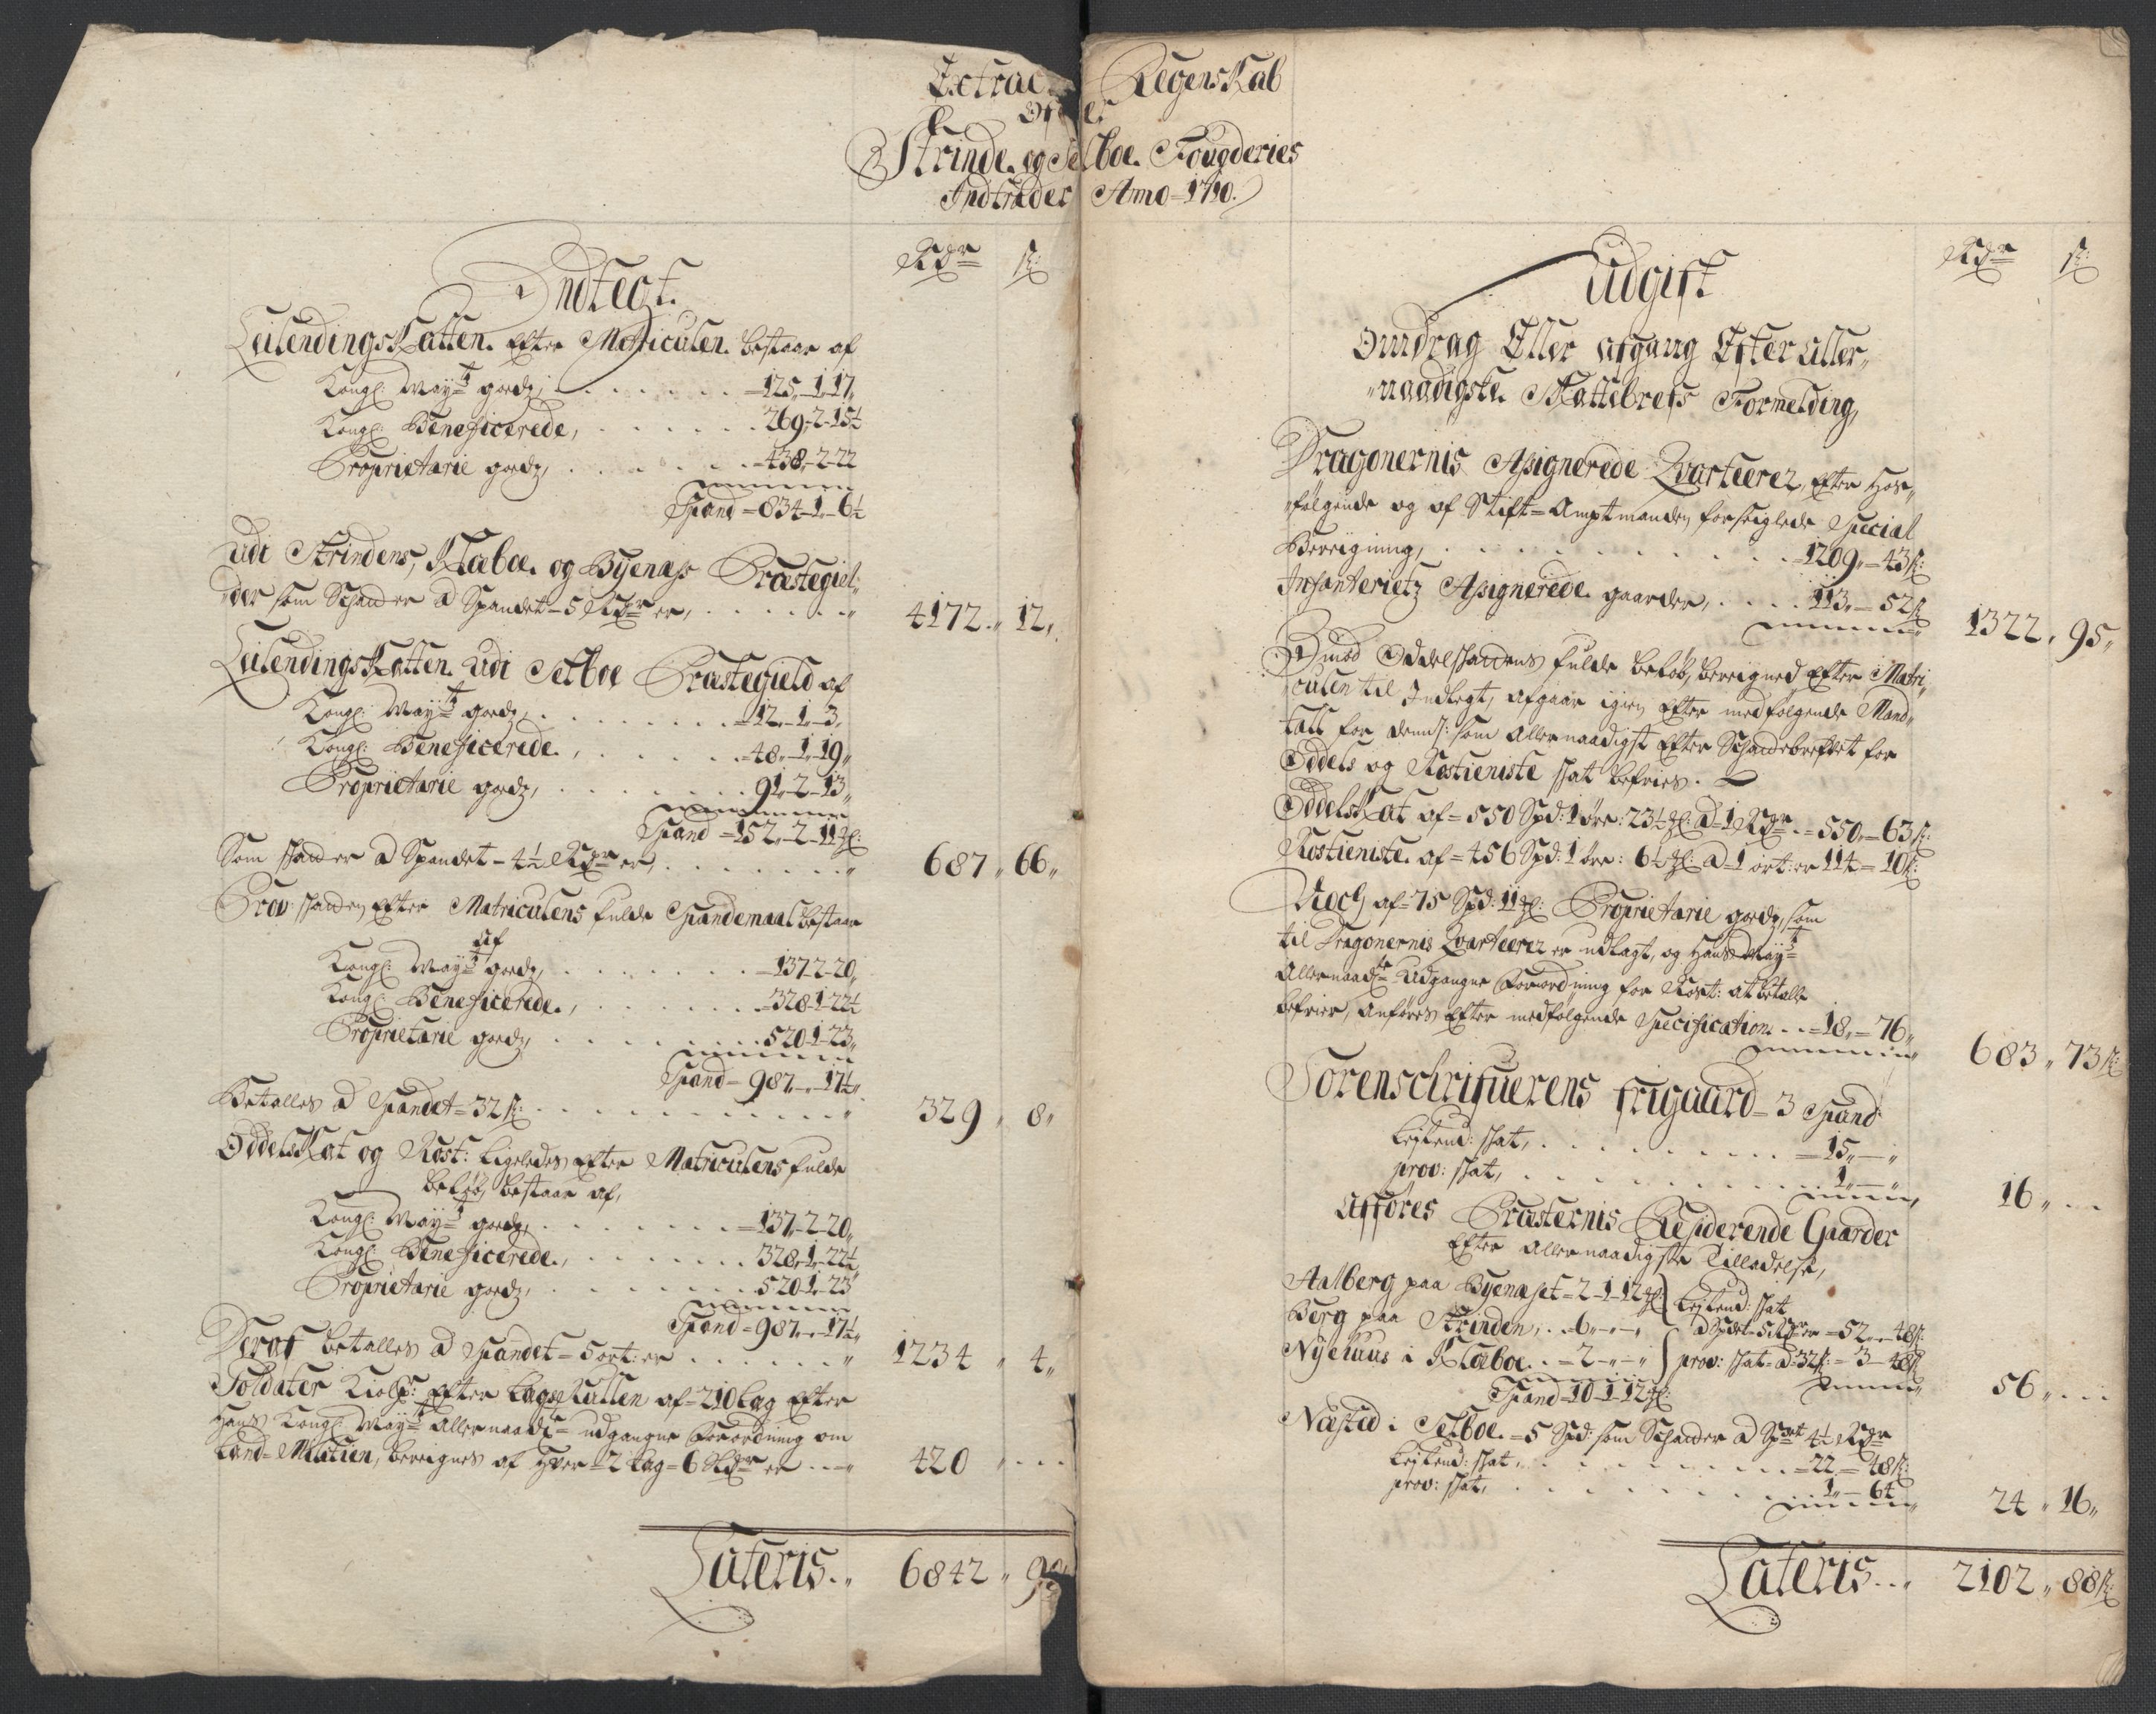 Extrac Regenskab
Ofver
Strinde og Selboe Fougderies
Indtrader Anno 1710.
Indtegt.
Rdr sk:
Leilendings Skatten efter Matriculen bestaar af
Kongl: Mayts godz, . . . 125 - 1 - 17
Kongl: Beneficerede, . . . 269 - 2 - 15½
Proprietarie godz, . . . 438 - 2 - 22
Spand = 834 - 1 - 6½
Udi Strindens, Klæboe og Byenæss Præstegiel-
der som Schader a Spandet 5 Rdr er, . . . 4172 " 12 "
Leilendings Skatten udi Selboe Præstegield af
Kongl: Mayts godz, . . . 12 - 1 - 3
Kongl: Beneficerede, . . . 48 - 1 - 19
Proprietarie godz, . . . 91 - 2 - 13
Spand = 152 - 2 - 11 ℳ:
Som skader a Spandet - 4½ Rdr er, . . . 687 " 66 "
Prov: skaden efter Matriculens fulde Spandemaal bestaar
af
Kongl: Mayts godz, . . . 137 - 2 - 20
Kongl: Beneficerede, . . . 328 - 1 - 22½
Proprietarie godz, . . . 520 - 1 - 23
Spand = 987 - " - 17½
Betalles a Spandet = 32 sk: . . . 329 " 8 "
Oddelskat og Rost: ligeledes efter Matriculens fulde
beløb, bestaar af,
Kongl: Mayts godz, . . . 137 - 2 - 20
Kongl: Beneficerede, . . . 328 - 1 - 22½
Proprietarie godz, . . . 520 - 1 - 23
Spand = 987 - " - 17½
Deraf betalles a Spandet = 5 ort: er . . . 1234 " 4 "
Soldater efter Lags Rullen af = 210 Lag efter
Hans Kongl: Mayts allernaadste udgangne Forordning om
Land-Militien, bereignes af hver 2 Lag = 6 Rdr er . . . 420 " . . .
Lateris . . 6842 " 90
Udgift
Rdr sk:
Omdrag Eller afgang Efter aller-
naadigste Skattebrefs Formelding,
Dragonernis Assignerede Qvarteerer, efter hos-
følgende og af Stift-Amptmanden forseiglede Special
Bereigning, . . . 1209 " 43 sk:
Infanterietz Assignerede gaarder, . . . 113 " 52 sk 1322 " 95 "
Imod Oddelskattens fulde beløb, bereigned efter Matri-
culen til Indtegt, afgaar igien efter medfølgende Mand-
tall for dennem som allernaadigst efter Schattebrefvet for
Oddels og Rostieniste skat befries.
Oddelskat af = 550 Spd: 1 øre: 23½ ℳ: a 1 Rdr . = 550 - 63 sk:
Rostieniste af = 456 Spd: 1 øre: 6½ ℳ: a 1 ort: er 114 = 10 sk:
Noch af 75 Spd: 11 ℳ: Proprietarie godz, som
til Dragonernis Qvarteerer er udlagt, og Hans Mayts
allernaadste udgangne Forordning for Rost: at betalle
befrier, anføres efter medfølgende Specification . . 18 - 76 " 683 " 73 sk
Sorenschrifuerens frigaard = 3 Spand
Leylend: skat, . . . 15 " — "
prov: skat, . . . 1 " — " 16 " . . .
Afføres Præsternis Residerende Gaarder
Efter allernaadigste Tilladelse,
Aalberg paa Byenæset = 2 - 1 - 12 ℳ: Leylend: skat
Berg paa Strinden, . . 6 " - " - " a Spdet 5 Rdr er = 52 " - 48 sk:
Nyehuus i Klæboe . . = 2 - " - " prov: skat a 32 sk: = 3 - 48 sk 56 " . . .
Spand 10 - 1 - 12 ℳ:
Næsted i Selboe = 5 Spd: som Schader a Spdet 4½ Rdr
Leylend: skat, . . . 22 - 48 sk:
prov: skat, . . . 1 - 64 24 " 16 "
Lateris . . 2102 " 88 sk: